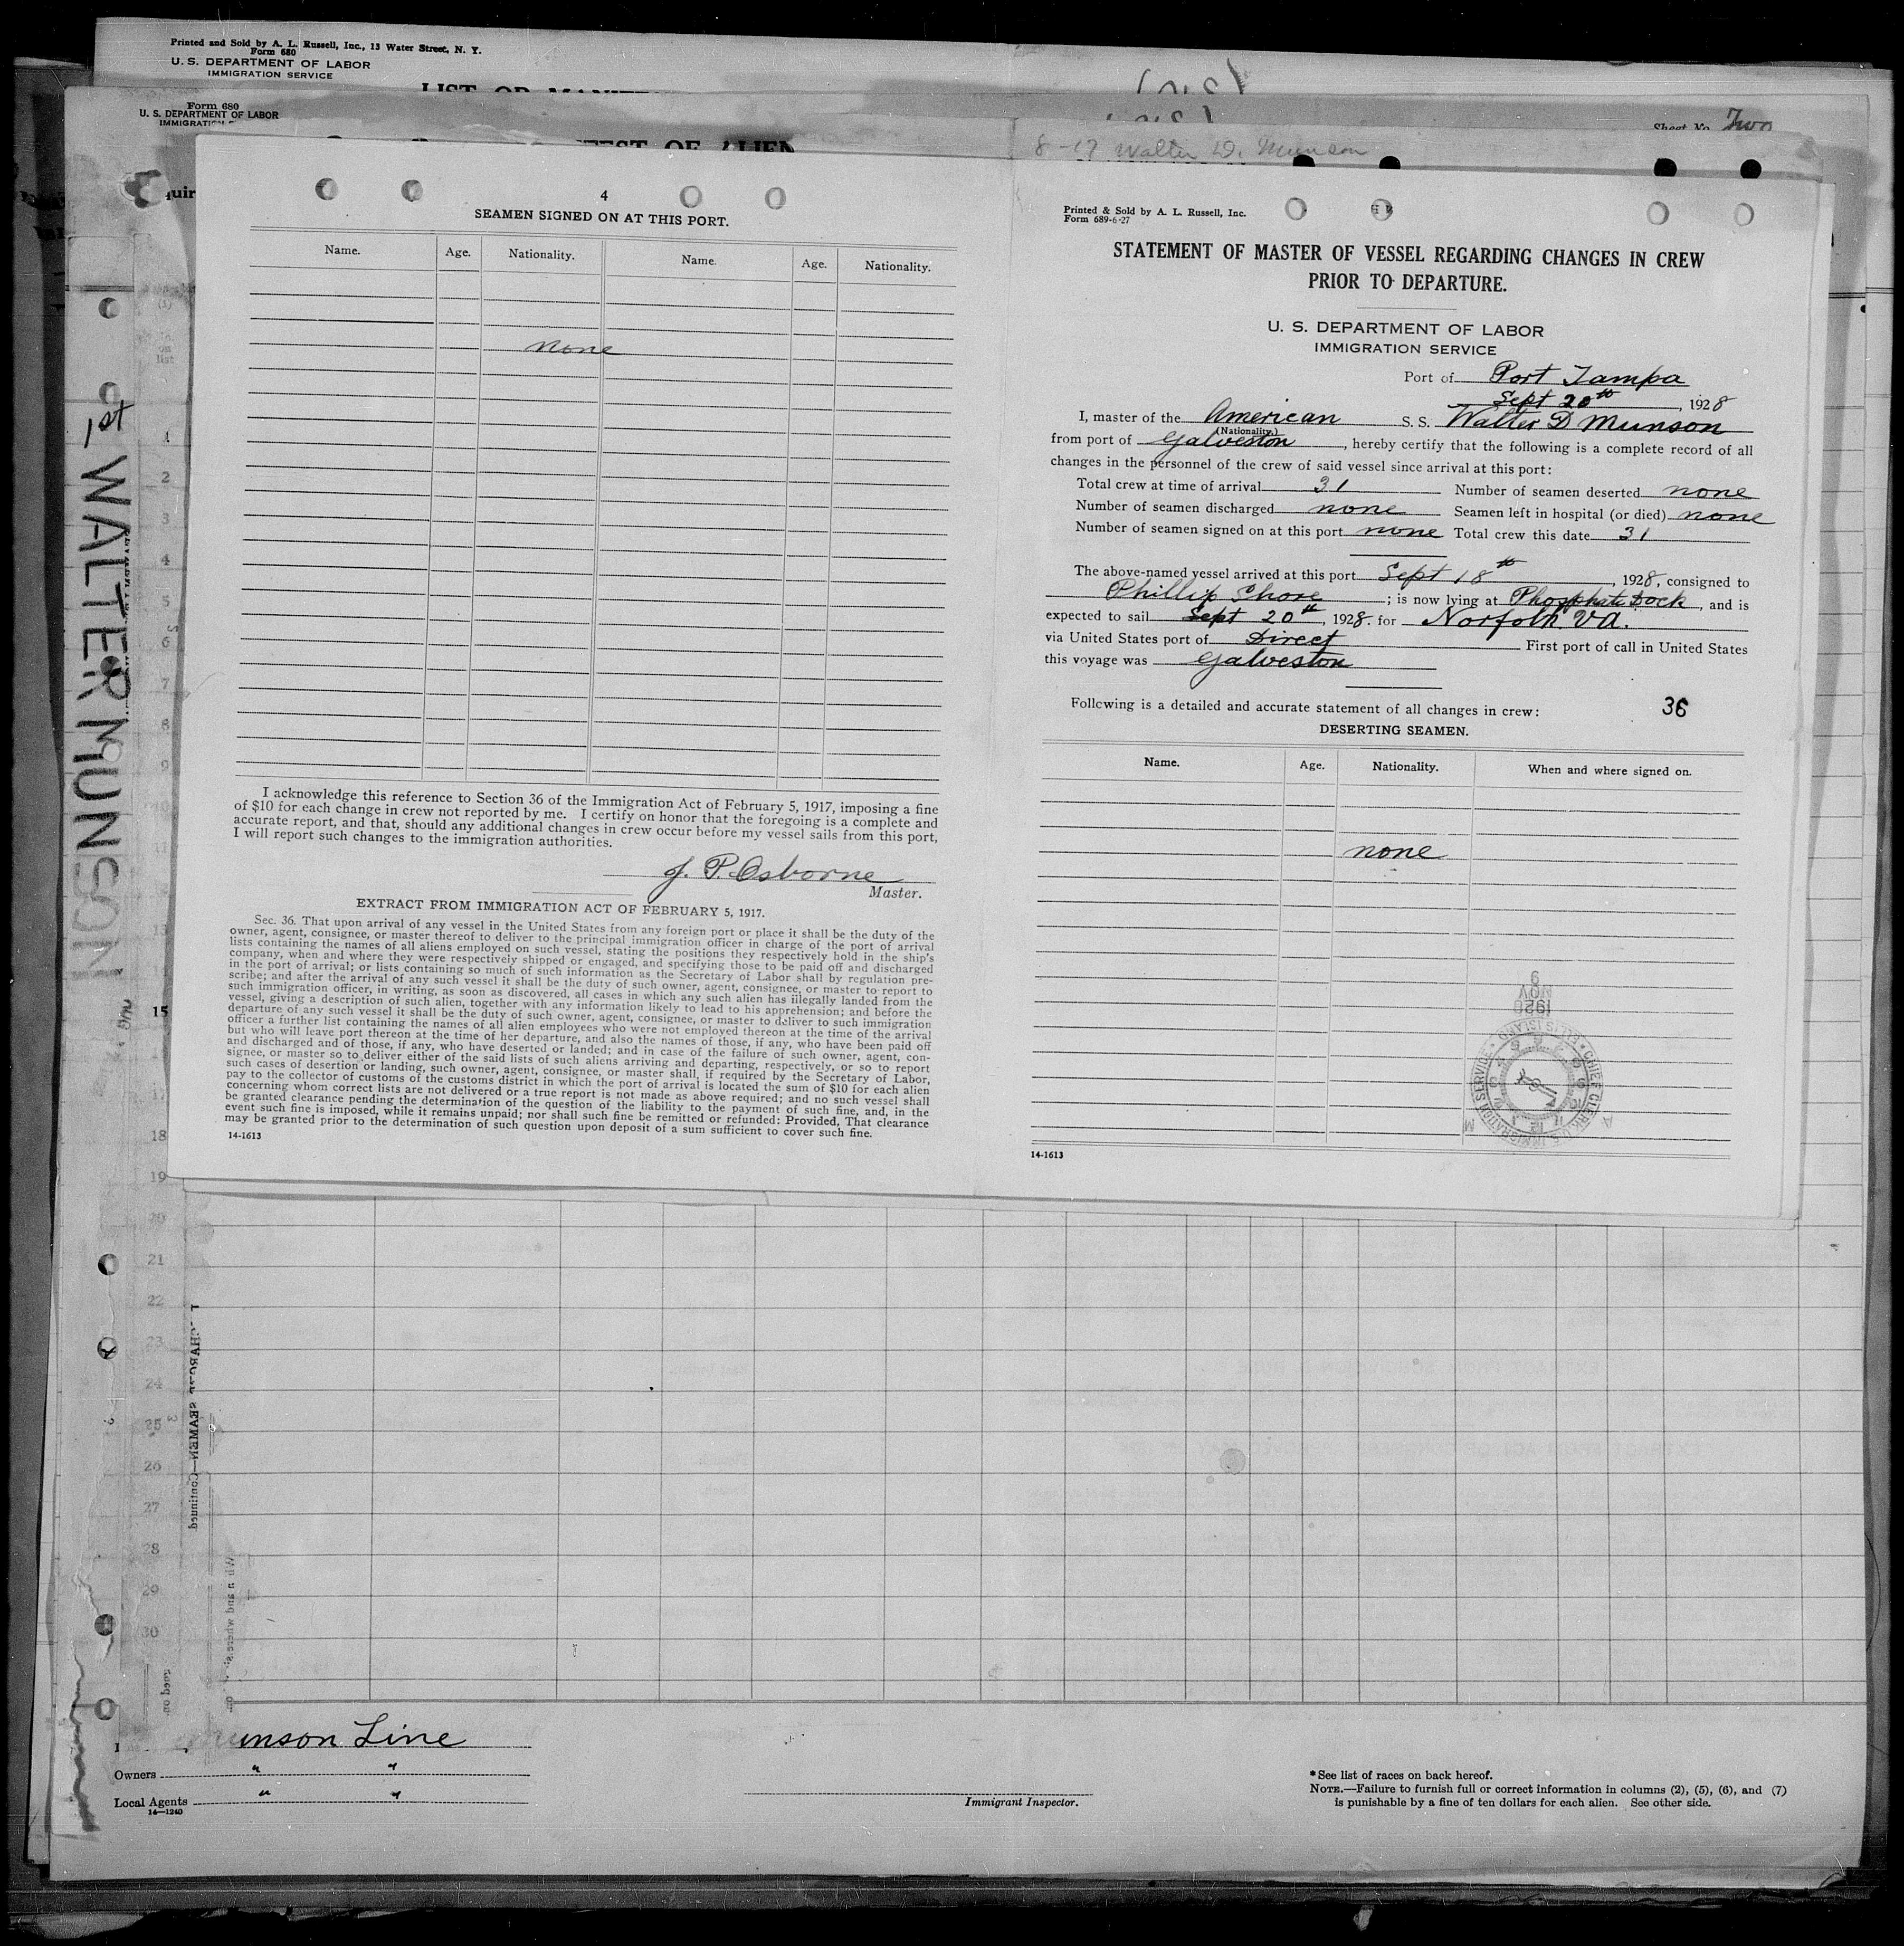 Printed and Sold by A. L. Russell, Inc., 13 Water Street, N. Y.
Form 680
U. S. DEPARTMENT OF LABOR
IMMIGRATION SERVICE
Form 680
U. S. DEPARTMENT OF LABOR
Sheet No. Two
8-17 Walter D. Munson
1st WALTER MUNSON
4
SEAMEN SIGNED ON AT THIS PORT.
Name. Age. Nationality. Name. Age. Nationality.
none
I acknowledge this reference to Section 36 of the Immigration Act of February 5, 1917, imposing a fine
of $10 for each change in crew not reported by me. I certify on honor that the foregoing is a complete and
accurate report, and that, should any additional changes in crew occur before my vessel sails from this port,
I will report such changes to the immigration authorities.
J. P. Osborne
Master.
EXTRACT FROM IMMIGRATION ACT OF FEBRUARY 5, 1917.
Sec. 36. That upon arrival of any vessel in the United States from any foreign port or place it shall be the duty of the
owner, agent, consignee, or master thereof to deliver to the principal immigration officer in charge of the port of arrival
lists containing the names of all aliens employed on such vessel, stating the positions they respectively hold in the ship's
company, when and where they were respectively shipped or engaged, and specifying those to be paid off and discharged
in the port of arrival; or lists containing so much of such information as the Secretary of Labor shall by regulation pre-
scribe; and after the arrival of any such vessel it shall be the duty of such owner, agent, consignee, or master to report to
such immigration officer, in writing, as soon as discovered, all cases in which any such alien has illegally landed from the
vessel, giving a description of such alien, together with any information likely to lead to his apprehension; and before the
departure of any such vessel it shall be the duty of such owner, agent, consignee, or master to deliver to such immigration
officer a further list containing the names of all alien employees who were not employed thereon at the time of the arrival
but who will leave port thereon at the time of her departure, and also the names of those, if any, who have been paid off
and discharged and of those, if any, who have deserted or landed; and in case of the failure of such owner, agent, con-
signee, or master so to deliver either of the said lists of such aliens arriving and departing, respectively, or so to report
such cases of desertion or landing, such owner, agent, consignee, or master shall, if required by the Secretary of Labor,
pay to the collector of customs of the customs district in which the port of arrival is located the sum of $10 for each alien
concerning whom correct lists are not delivered or a true report is not made as above required; and no such vessel shall
be granted clearance pending the determination of the question of the liability to the payment of such fine, and, in the
event such fine is imposed, while it remains unpaid; nor shall such fine be remitted or refunded: Provided, That clearance
may be granted prior to the determination of such question upon deposit of a sum sufficient to cover such fine.
14-1613
Printed & Sold by A. L. Russell, Inc.
Form 689-6-27
STATEMENT OF MASTER OF VESSEL REGARDING CHANGES IN CREW
PRIOR TO DEPARTURE.
U. S. DEPARTMENT OF LABOR
IMMIGRATION SERVICE
Port of Port Tampa
Sept 20th, 1928
I, master of the American S. S. Walter D Munson
(Nationality.)
from port of Galveston, hereby certify that the following is a complete record of all
changes in the personnel of the crew of said vessel since arrival at this port:
Total crew at time of arrival 31 Number of seamen deserted none
Number of seamen discharged none Seamen left in hospital (or died) none
Number of seamen signed on at this port none Total crew this date 31
The above-named vessel arrived at this port Sept 18th, 1928, consigned to
Phillip Shore; is now lying at Phosphate Dock, and is
expected to sail Sept 20th, 1928. for Norfolk VA.
via United States port of Direct First port of call in United States
this voyage was Galveston
Following is a detailed and accurate statement of all changes in crew: 36
DESERTING SEAMEN.
Name. Age. Nationality. When and where signed on.
none
1928 NOV 9
CHIEF CLERK U. S. IMMIGRATION SERVICE • ELLIS ISLAND
14-1613
1
2
3
4
5
6
7
8
9
15
18
19
20
21
22
23
24
25
26
27
28
29
30
SEAMEN—Continued
Line
Owners " "
Local Agents " "
14—1240
Immigrant Inspector.
*See list of races on back hereof.
NOTE.—Failure to furnish full or correct information in columns (2), (5), (6), and (7)
is punishable by a fine of ten dollars for each alien. See other side.